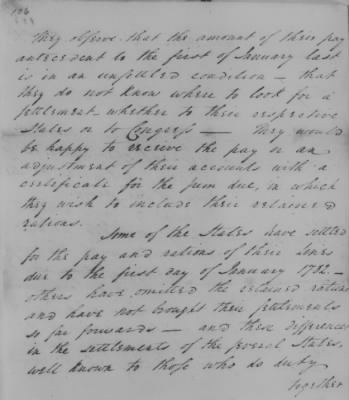 186
They observe that the amount of their pay
antecedent to the first of January last
is in an unsettled condition — that
they do not know where to look for a
settlement whether to their respective
States or to Congress — They would
be happy to receive the pay or an
adjustment of their accounts with a
certificate for the sum due, in which
they wish to include their retained
rations.
Some of the States have settled
for the pay and rations of their Lines
due to the first day of January 1782 —
others have omitted the retained rations
and have not brought their settlements
so far forwards — and these differences
in the settlements of the several States,
well known to those who do duty
together